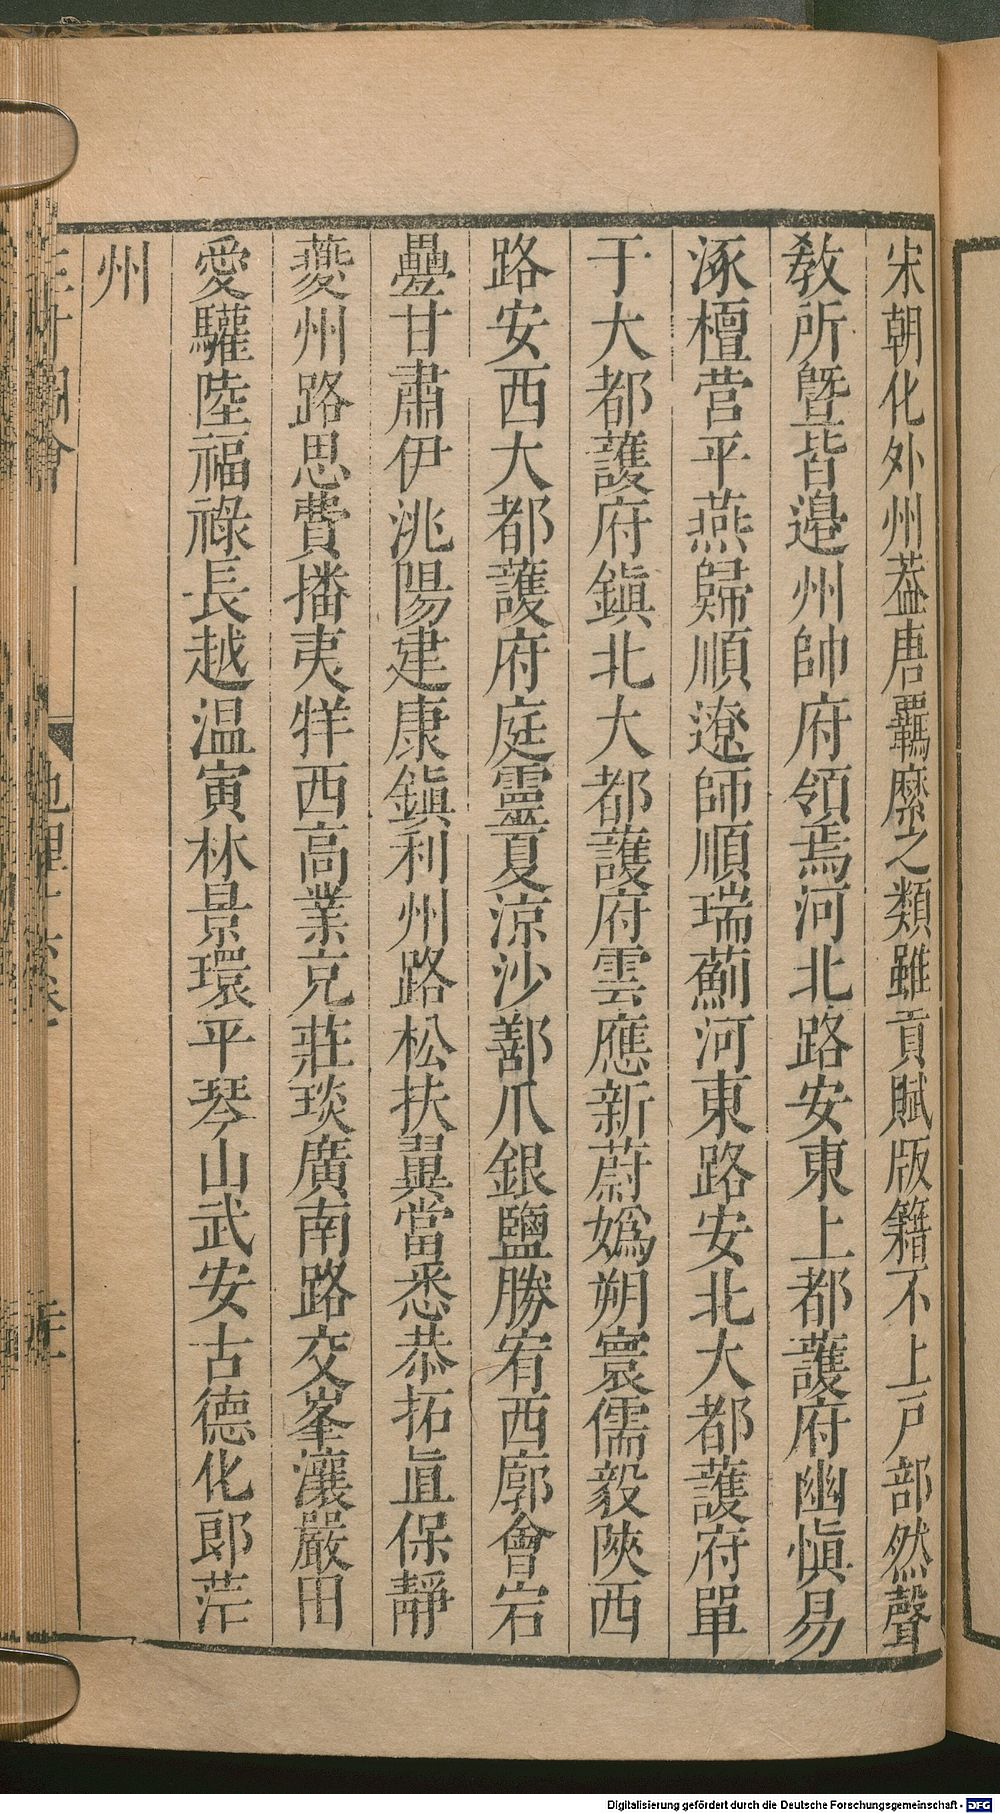 宋朝化外州葢唐羈縻之類雖貢賦版籍不上戸部然聲
敎所曁皆邉州帥府領焉河北路安東上都護府幽愼易
涿檀营平燕歸順遼師順瑞薊河東路安北大都護府單
于大都護府鎭北大都護府雲應新蔚嬀朔寰儒毅陜西
路安西大都護府庭靈夏涼沙鄯爪銀鹽勝宥西廓會宕
疊甘肅伊洮陽建康鎭利州路松扶翼當悉恭拓眞保靜
夔州路思費播夷牂西高業克莊琰廣南路交峯瀼嚴田
愛驩陸福祿長越温寅林景環平琴山武安古德化郎茫
州